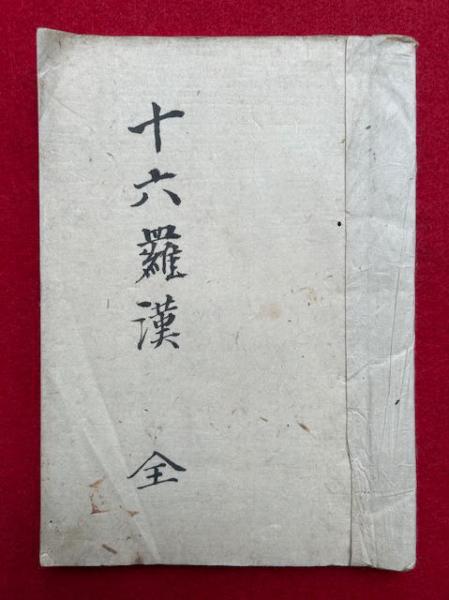 十六羅漢 全